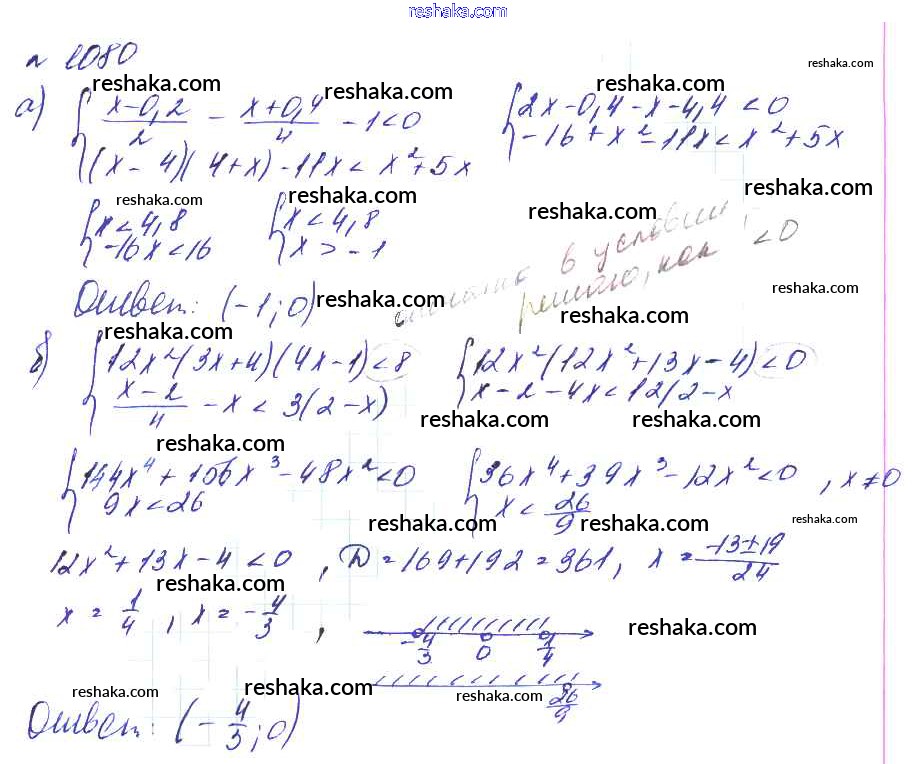 reshaka.com
№ 1080
reshaka.com reshaka.com reshaka.com reshaka.com
а) { (x-0,2)/2 - (x+0,4)/4 - 1<0 { 2x-0,4-x-4,4<0
(x-4)(4+x)-11x<x²+5x -16+x²-11x<x²+5x
reshaka.com reshaka.com reshaka.com reshaka.com
{ x<4,8 { x<4,8
-16x<16 x>-1
в условии,
решаю, как <0
Ответ: (-1;0) reshaka.com reshaka.com
reshaka.com reshaka.com
б) { 12x²(3x+4)(4x-1)<8 { 12x²(12x²+13x-4)<0
(x-2)/4 - x < 3(2-x) x-2-4x<12(2-x)
reshaka.com reshaka.com reshaka.com
{ 144x⁴+156x³-48x²<0 { 36x⁴+39x³-12x²<0, x≠0
9x<26 x<26/9
reshaka.com reshaka.com reshaka.com
12x²+13x-4<0, D=169+192=361, x=(-13±19)/24
reshaka.com
x=1/4, x=-4/3,
-4/3 0 1/4
reshaka.com
reshaka.com reshaka.com reshaka.com
26/9
Ответ: (-4/3;0)